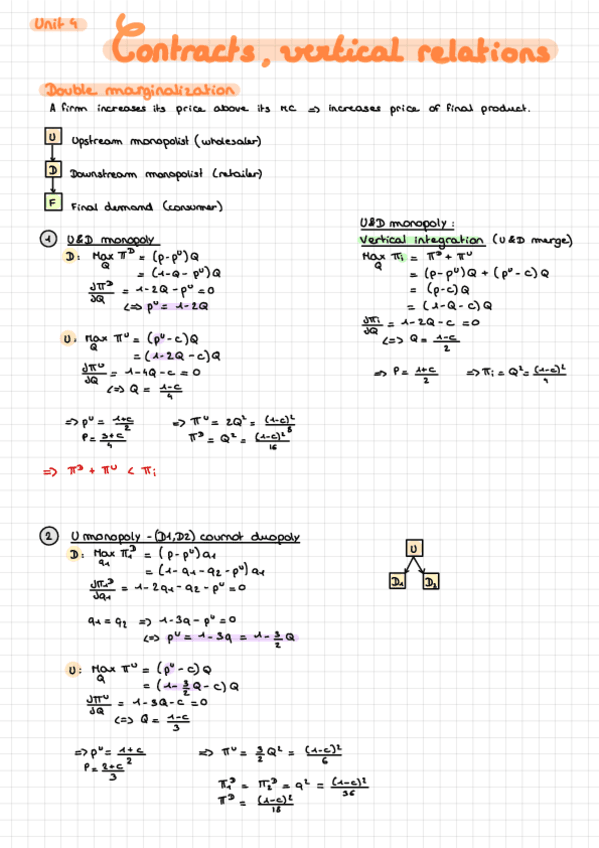 Unit 4
Contracts, vertical relations
Double marginalization
A firm increases its price above its MC => increases price of final product.
U Upstream monopolist (wholesaler)
D Downstream monopolist (retailer)
F Final demand (consumer)
1 U&D monopoly
D: Max Π^D = (p-p^U)Q
Q
= (1-Q-p^U)Q
dΠ^D/dQ = 1-2Q-p^U = 0
<=> p^U = 1-2Q
U: Max Π^U = (p^U-c)Q
Q
= (1-2Q-c)Q
dΠ^U/dQ = 1-4Q-c = 0
<=> Q = (1-c)/4
=> p^U = (1+c)/2 => Π^U = 2Q² = (1-c)²/8
P = (3+c)/4 Π^D = Q² = (1-c)²/16
=> Π^D + Π^U < Πi
U&D monopoly:
Vertical integration (U&D merge)
Max Πi = Π^D + Π^U
Q
= (p-p^U)Q + (p^U-c)Q
= (p-c)Q
= (1-Q-c)Q
dΠi/dQ = 1-2Q-c = 0
<=> Q = (1-c)/2
=> P = (1+c)/2 => Πi = Q² = (1-c)²/4
2 U monopoly - (D1,D2) cournot duopoly
D: Max Π1^D = (p-p^U)q1
q1
= (1-q1-q2-p^U)q1
dΠ1^D/dq1 = 1-2q1-q2-p^U = 0
q1 = q2 => 1-3q-p^U = 0
<=> p^U = 1-3q = 1-3/2 Q
U: Max Π^U = (p^U-c)Q
Q
= (1-3/2 Q-c)Q
dΠ^U/dQ = 1-3Q-c = 0
<=> Q = (1-c)/3
=> p^U = (1+c)/2 => Π^U = 3/2 Q² = (1-c)²/6
P = (2+c)/3
Π1^D = Π2^D = q² = (1-c)²/36
Π^D = (1-c)²/18
U
D1 D2